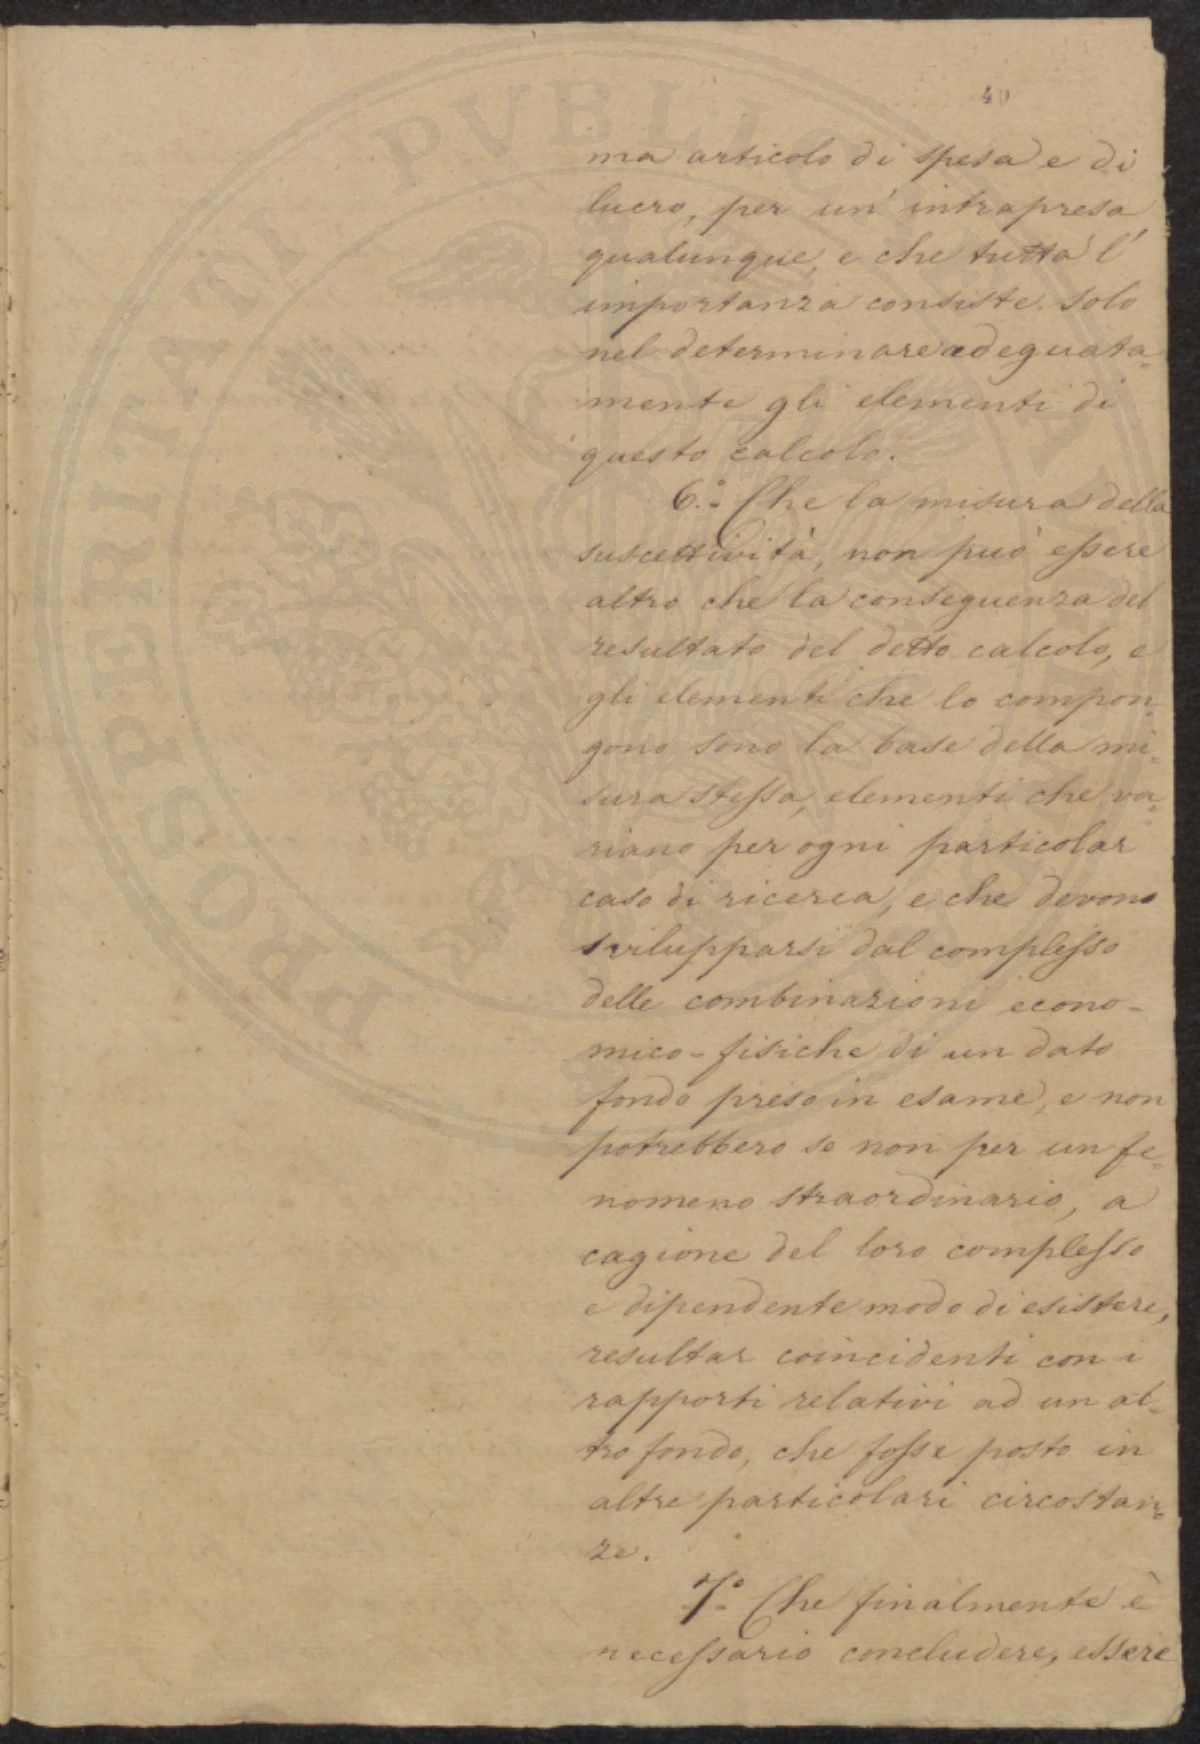 40
ma articolo di spesa e di
lucro, per un' intrapresa
qualunque, e che tutta l'
importanza consiste solo
nel determinare adeguata-
mente gli elementi di
questo calcolo.
6.° Che la misura della
suscettività, non può essere
altro che la conseguenza del
resultato del detto calcolo, e
gli elementi che lo compon-
gono sono la base della mi-
sura stessa, elementi che va-
riano per ogni particolar
caso di ricerca, e che devono
svilupparsi dal complesso
delle combinazioni econo-
mico-fisiche di un dato
fondo preso in esame, e non
potrebbero se non per un fe-
nomeno straordinario, a
cagione del loro complesso
e dipendente modo di esistere,
resultar coincidenti con i
rapporti relativi ad un al-
tro fondo, che fosse posto in
altre particolari circostan-
ze.
7.° Che finalmente è
necessario concludere, essere
PROSPERITATI PVBLICAE